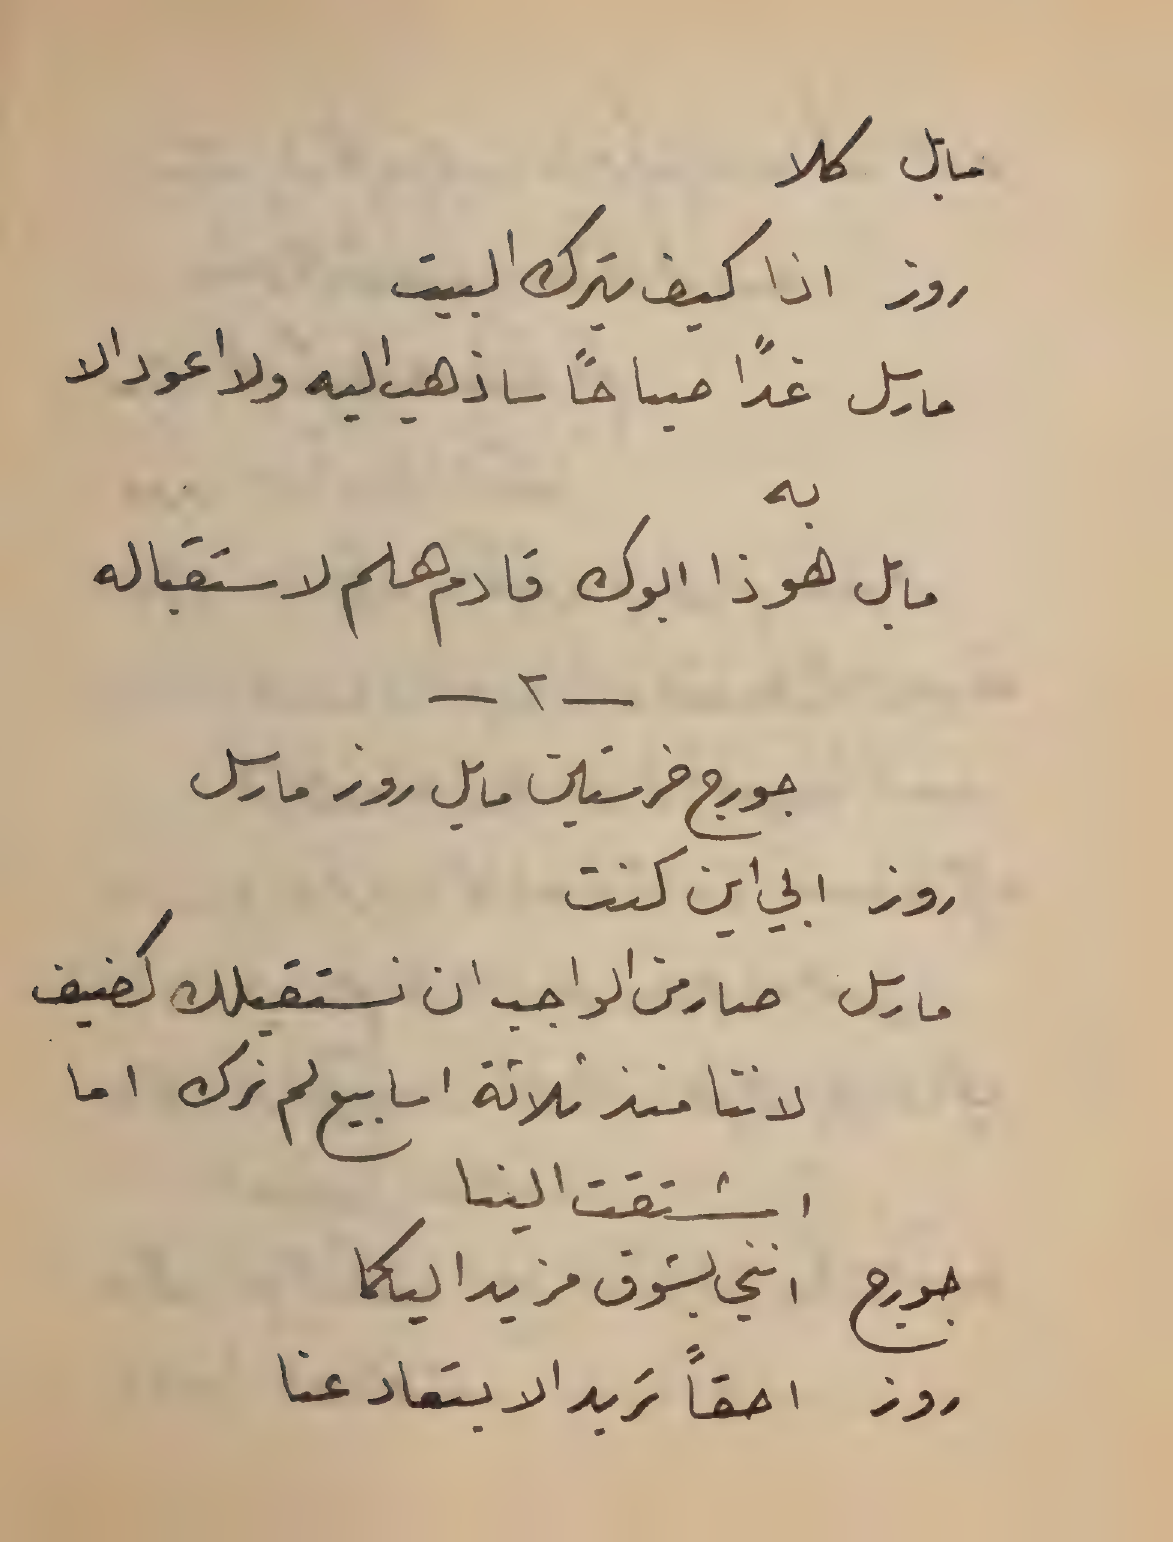 مابل كلا
روز اذا كيف يترك البيت
مارسل غدًا صباحًا ساذهب اليه ولا اعود الا
به
مابل هوذا ابوك قادم هلم لاستقباله
— ٢ —
جورج خرستين مابل روز مارسل
روز ابي اين كنت
مارسل صار من الواجب ان نستقبلك كضيف
لاننا منذ ثلاثة اسابيع لم نرك اما
اشتقت الينا
جورج انني بشوق مزيد اليكما
روز احقاً تريد الابتعاد عنا